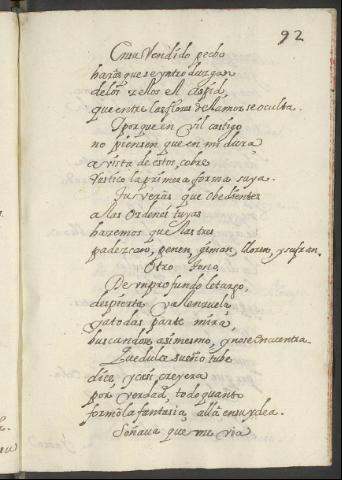 92
En su Vendido pecho
harás que se yntroduzgan
de los zelos el aspid,
que entre las flores del amor se oculta.
Y porque en vil castigo
no piensen que en mi dura
a vista de estos, cobre
Vestico la primera forma suya.
Tu verás que obedientes
a las ordenes tuyas
haremos que las tres
padezcan, penen, giman, lloren, y sufran.
Otro tono.
De un profundo letargo,
despierta Valenzuela
y a todas parte mira,
buscandose asimesmo, y no se encuentra.
Que dulce sueño tube
dice, y casi creyera
por verdad, todo quanto
formò la fantasia, allà en su ydea.
Soñaua que me via